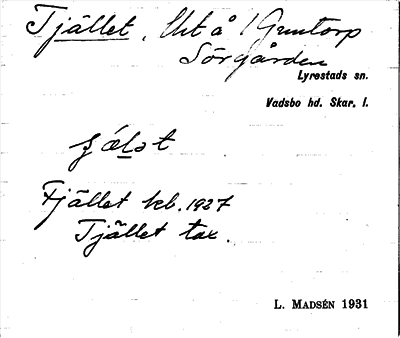 Tjället, Ut å /Gumtorp
Sörgården
Lyrestads sn.
Vadsbo hd. Skar. l.
Fjället kb. 1927
Tjället tax.
L. MADSÉN 1931